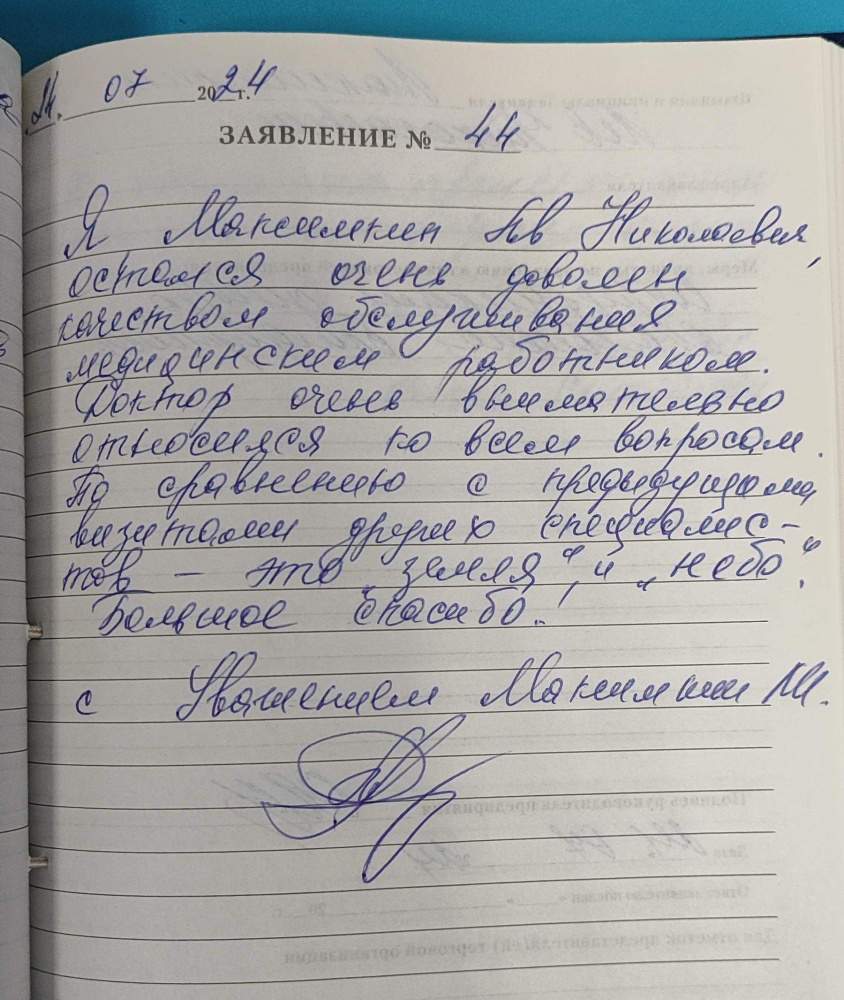 24. 07 2024 г.
ЗАЯВЛЕНИЕ № 44
Я Максимкин Николаевич,
остался очень доволен
качеством обслуживания
медицинским работником.
Доктор очень внимательно
относился ко всем вопросам.
По сравнению с предыдущими
визитами других специалис-
тов – это „земля“, и „небо“.
Большое спасибо!
с Уважением Максимкин